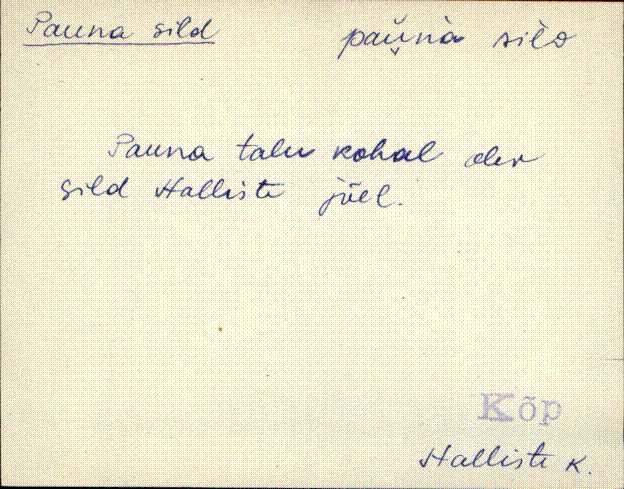 Pauna sild pau̬nà silᴅ
Pauna talu kohal olev
sild Halliste jõel.
Kõp
Halliste k.